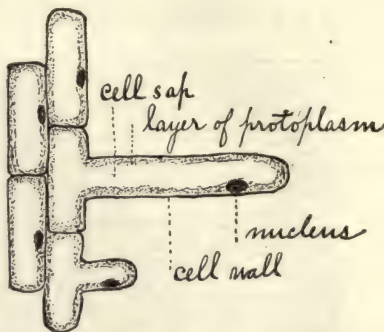 cell sap
layer of protoplasm
nucleus
cell wall